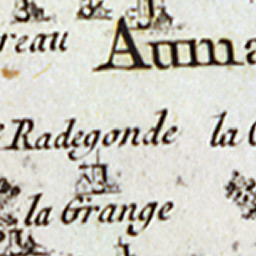 reau Auma
Radegonde la
la Grange